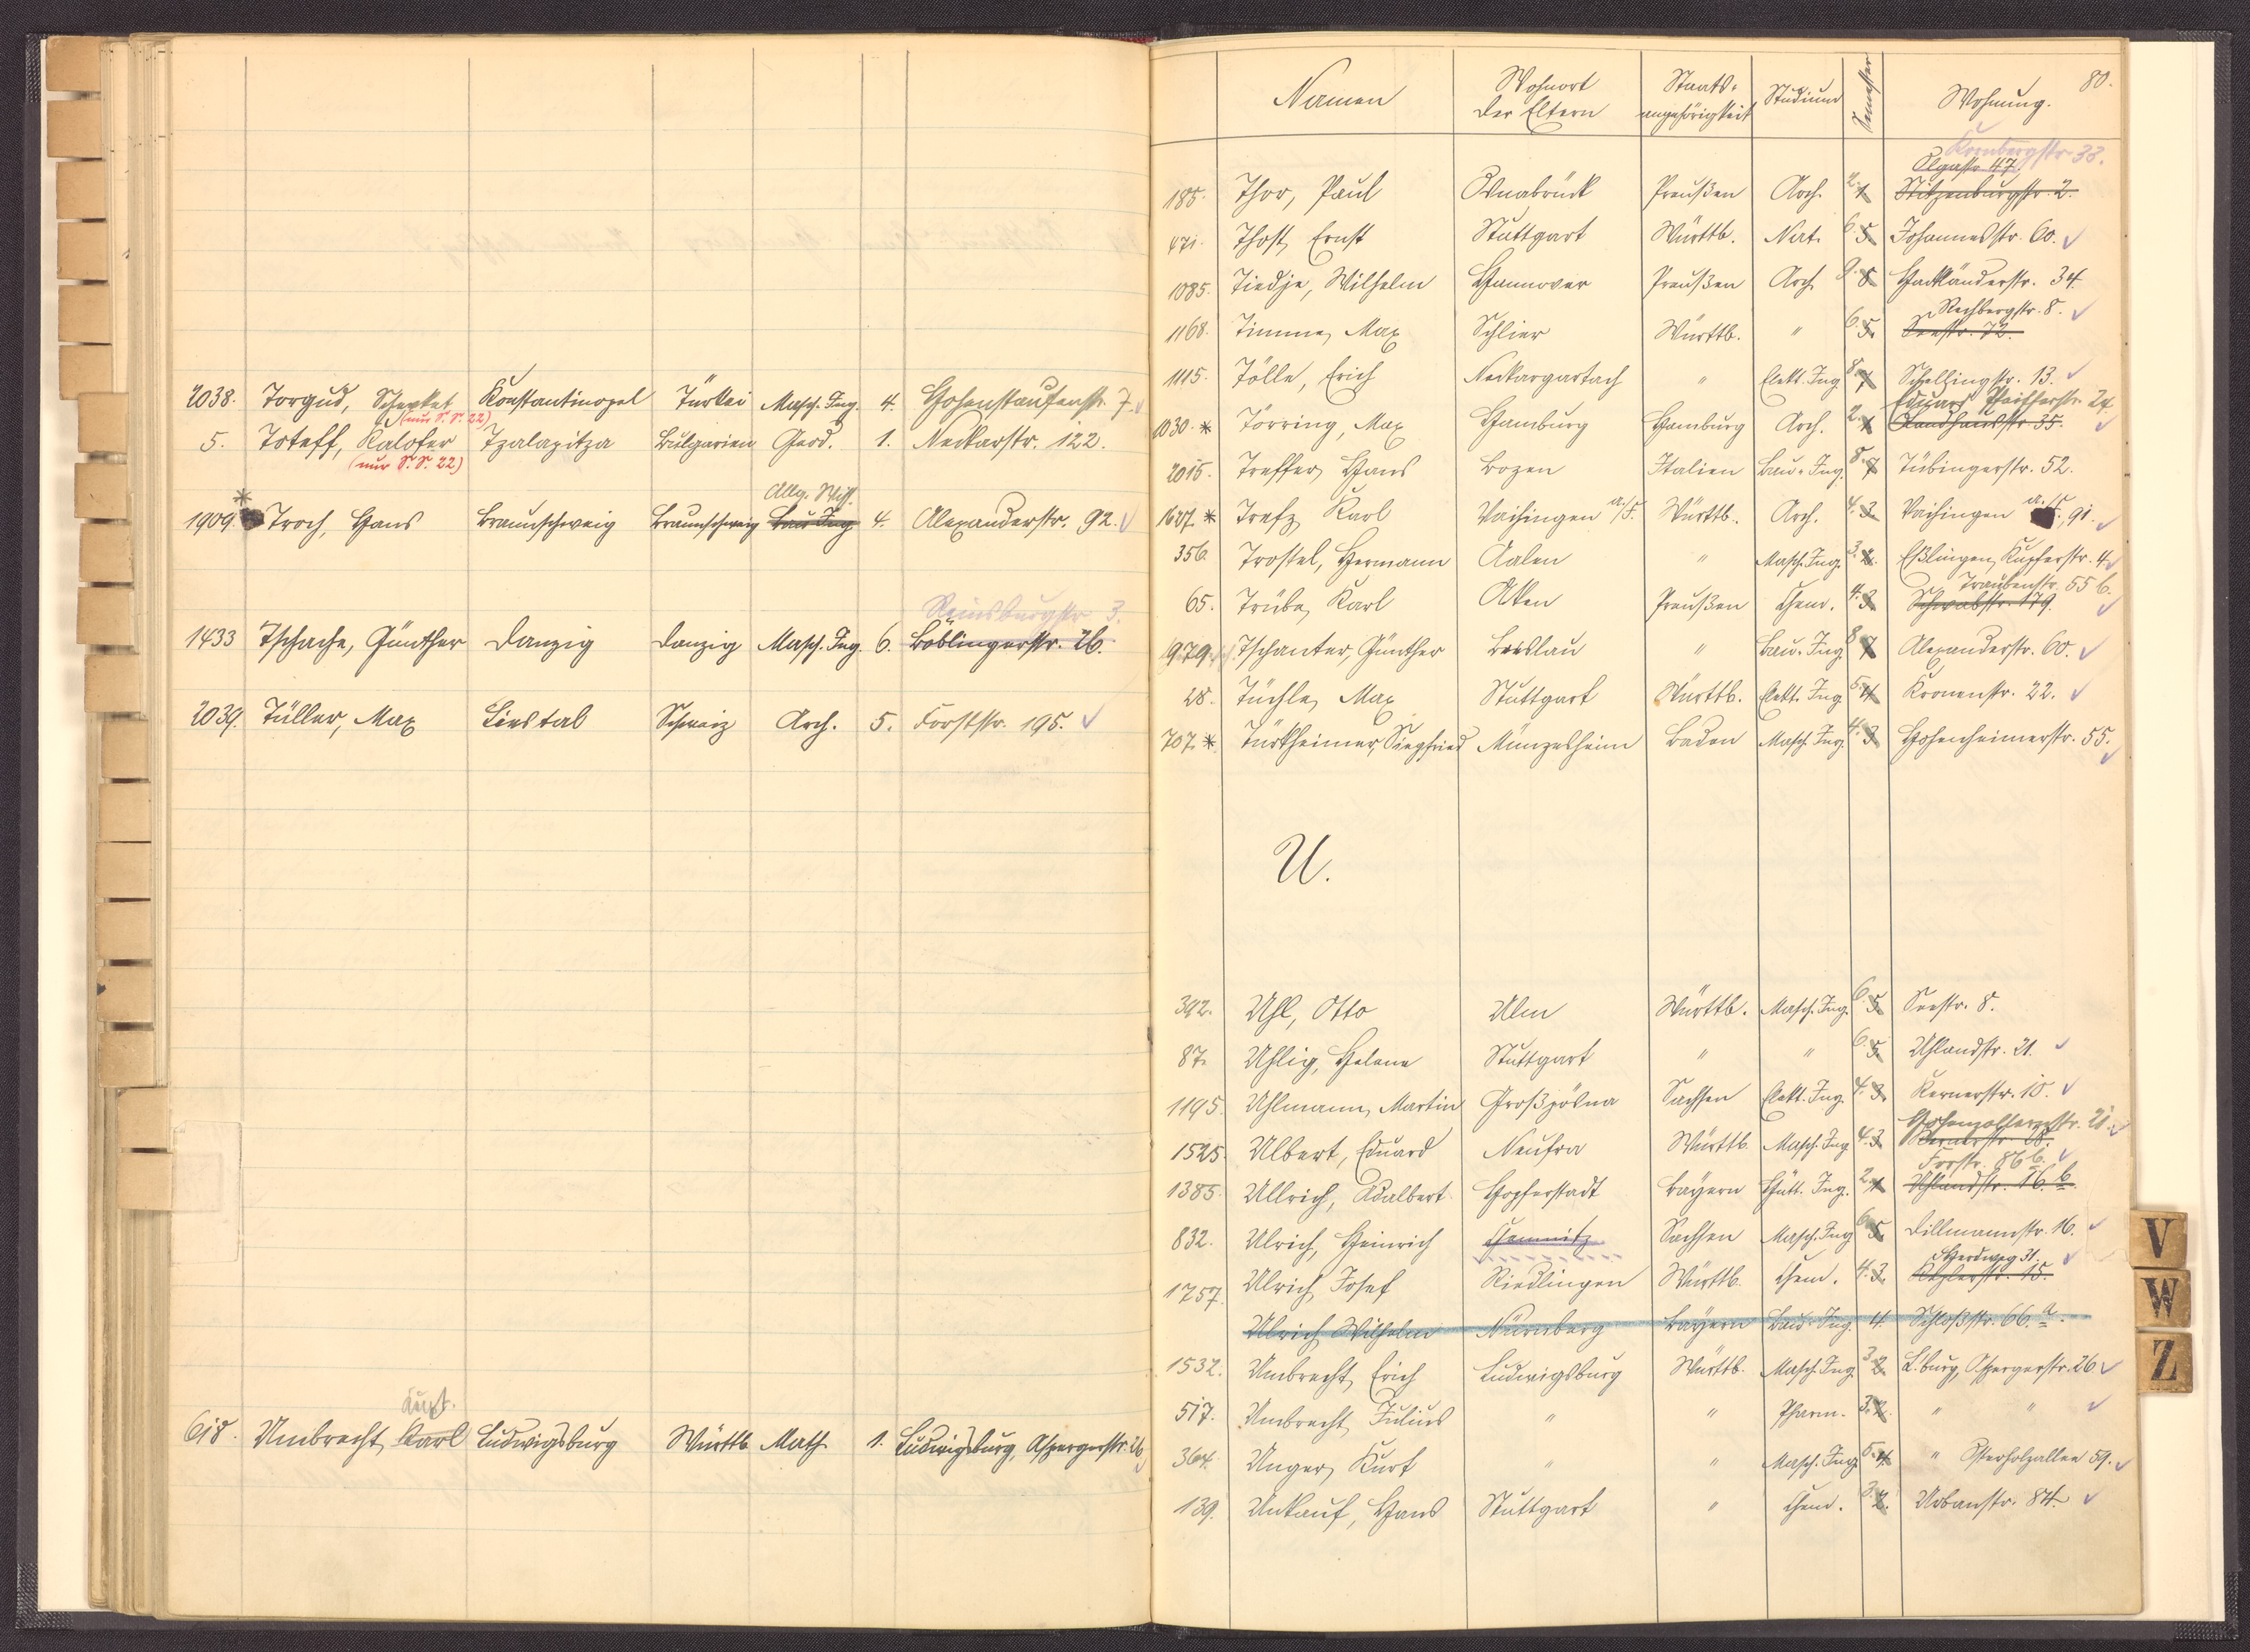 2038. Torgud, Schevket Konstantinopel Türkei Masch. Ing. 4. Hohenstaufenstr. 7.
(nur S. S. 22)
5. Toteff, Kalofer Tzalapitza Bulgarien Geod. 1. Neckarstr. 122.
(nur S. S. 22)
Allg. Wiss.
1909. * Troch, Hans Braunschweig Braunschweig Bau Ing. 4. Alexanderstr. 92.
Reinsburgstr. 3.
1433 Tschache, Günther Danzig Danzig Masch. Ing. 6. Böblingerstr. 26.
2039. Tüller, Max Liestal Schweiz Arch. 5. Forststr. 195.
Kurt.
618. Umbrecht, Karl Ludwigsburg Württb. Math. 1. Ludwigsburg, Aspergerstr. 26
80.
Namen Wohnort der Eltern Staats-angehörigkeit Studium Semester Wohnung.
Kornbergstr. 33.
Olgastr. 47.
185. Thor, Paul Osnabrück Preußen Arch. 2. 1. Stitzenburgstr. 2.
471. Thost, Ernst Stuttgart Württb. Nat. 6. 5. Johannesstr. 60.
1085. Tiedje, Wilhelm Hannover Preußen Arch. Hackländerstr. 34.
Rechbergstr. 8.
1168. Timme, Max Schlier Württb. " 6. 5. Seestr. 72.
1115. Tölle, Erich Neckargartach " Elekt. Ing. 8. 7. Schellingstr. 13.
Eduard Pfeifferstr. 24.
1030. * Törring, Max Hamburg Hamburg Arch. 2. 1. Landhausstr. 35.
2015. Treffer, Hans Bozen Italien Bau-Ing. 8. 7. Tübingerstr. 52.
1687. * Trefz, Karl Vaihingen a/F. Württb. Arch. 4. 3. Vaihingen a. F., 91.
356. Trostel, Hermann Aalen " Masch. Ing. 3. 2. Eßlingen, Kupferstr. 4.
Traubenstr. 55 b.
65. Trübe, Karl Aken Preußen Chem. 4. 3. Schwabstr. 179.
1979. Tschanter, Günther Breslau " Bau-Ing. 8. 7. Alexanderstr. 60.
28. Tüchle, Max Stuttgart Württb. Elekt. Ing. 5. 4. Kronenstr. 22.
707. * Türkheimer, Siegfried Münzesheim Baden Masch. Ing. 4. 3. Hohenheimerstr. 55.
U.
392. Uhl, Otto Ulm Württb. Masch. Ing. 6. 5. Seestr. 8.
87. Uhlig, Helene Stuttgart " " 6. 5. Uhlandstr. 21.
1195. Uhlmann, Martin Großpösna Sachsen Elekt. Ing. 4. 3. Kernerstr. 10.
Hohenzollernstr. 21.
1525. Ulbert, Eduard Neufra Württb. Masch. Ing. 4. 3. Wernerstr. 28.
Forstr. 86 b.
1385. Ullrich, Adalbert Hopferstadt Bayern Hütt. Ing. 2. 1. Uhlandstr. 16 b
832. Ulrich, Heinrich Chemnitz Sachsen Masch. Ing. 6. 5. Dillmannstr. 16.
Herdweg 31.
1757. Ulrich, Josef Riedlingen Württb. Chem. 4. 3. 15.
Ulrich, Wilhelm Nürnberg Bayern Bau-Ing. 4. Schloßstr. 66. a.
1532. Umbrecht, Erich Ludwigsburg Württb. Masch. Ing. 3. 2. L'burg, Aspergerstr. 26
517. Umbrecht, Julius " " Pharm. 3. 2. " "
364. Unger, Kurt " " Masch. Ing. 5. 4. " Osterholzallee 59.
139. Unkauf, Hans Stuttgart " Chem. 3. 2. Urbanstr. 84.
V
W
Z